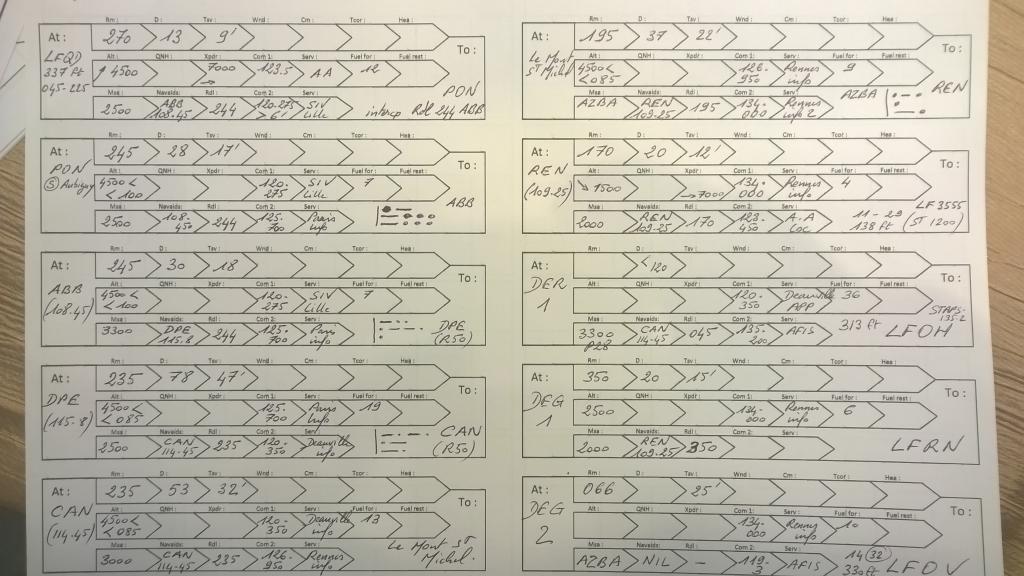 Rm : D : Tav : Wnd : Cm : Tcor : Hea :
At : 270 13 9' To :
LFQD Alt : QNH : Xpdr : Com 1: Serv : Fuel for : Fuel rest :
337 ft 4500 7000 123.5 AA 12
045-225 PON
Msa : Navaids: Rdl : Com 2: Serv :
2500 ABB 108.45 244 120.275 SIV Lille intercep Rdl 244 ABB
Rm : D : Tav : Wnd : Cm : Tcor : Hea :
At : 245 28 17' To :
PON Alt : QNH : Xpdr : Com 1: Serv : Fuel for : Fuel rest :
4500< <100 120.275 SIV Lille 7
ABB
Msa : Navaids: Rdl : Com 2: Serv :
2500 108.450 244 125.700 Paris info
Rm : D : Tav : Wnd : Cm : Tcor : Hea :
At : 245 30 18 To :
ABB Alt : QNH : Xpdr : Com 1: Serv : Fuel for : Fuel rest :
(108.45) 4500< <100 120.275 SIV Lille 7
Msa : Navaids: Rdl : Com 2: Serv :
3300 DPE 115.8 244 125.700 Paris info DPE (R50)
Rm : D : Tav : Wnd : Cm : Tcor : Hea :
At : 235 78 47' To :
DPE Alt : QNH : Xpdr : Com 1: Serv : Fuel for : Fuel rest :
(115.8) 4500< <085 125.700 Paris info 19
Msa : Navaids: Rdl : Com 2: Serv :
2500 CAN 114.45 235 120.350 Deauville info CAN (R50)
Rm : D : Tav : Wnd : Cm : Tcor : Hea :
At : 235 53 32' To :
CAN Alt : QNH : Xpdr : Com 1: Serv : Fuel for : Fuel rest :
(114.45) 4500< <085 120.350 Deauville info 13
Msa : Navaids: Rdl : Com 2: Serv :
3000 CAN 114.45 235 126.950 Rennes info Le Mont St Michel.
Rm : D : Tav : Wnd : Cm : Tcor : Hea :
At : 195 37 22' To :
Le Mont St Michel Alt : QNH : Xpdr : Com 1: Serv : Fuel for : Fuel rest :
4500< <085 126.950 Rennes info 9
Msa : Navaids: Rdl : Com 2: Serv :
AZBA REN 109.25 195 134.000 Rennes info 2 AZBA REN
Rm : D : Tav : Wnd : Cm : Tcor : Hea :
At : 170 20 12' To :
REN Alt : QNH : Xpdr : Com 1: Serv : Fuel for : Fuel rest :
(109.25) 1500 7000 134.000 Rennes info 4
LF3555
Msa : Navaids: Rdl : Com 2: Serv :
2000 REN 109.25 170 123.450 A.A Loc 11-29 138 ft (ST 1200)
Rm : D : Tav : Wnd : Cm : Tcor : Hea :
At : <120 To :
DER 1 Alt : QNH : Xpdr : Com 1: Serv : Fuel for : Fuel rest :
120.350 Deauville APP 36
Msa : Navaids: Rdl : Com 2: Serv :
3300 P28 CAN 114.45 045 135.200 AFIS 313 ft LFOH
Rm : D : Tav : Wnd : Cm : Tcor : Hea :
At : 350 20 15' To :
DEG 1 Alt : QNH : Xpdr : Com 1: Serv : Fuel for : Fuel rest :
2500 134.000 Rennes info 6
Msa : Navaids: Rdl : Com 2: Serv :
2000 REN 109.25 350 LFRN
Rm : D : Tav : Wnd : Cm : Tcor : Hea :
At : 066 25' To :
DEG 2 Alt : QNH : Xpdr : Com 1: Serv : Fuel for : Fuel rest :
134.000 Rennes info 10
Msa : Navaids: Rdl : Com 2: Serv :
AZBA NIL - 119.3 AFIS 14(32) 330ft LFOV